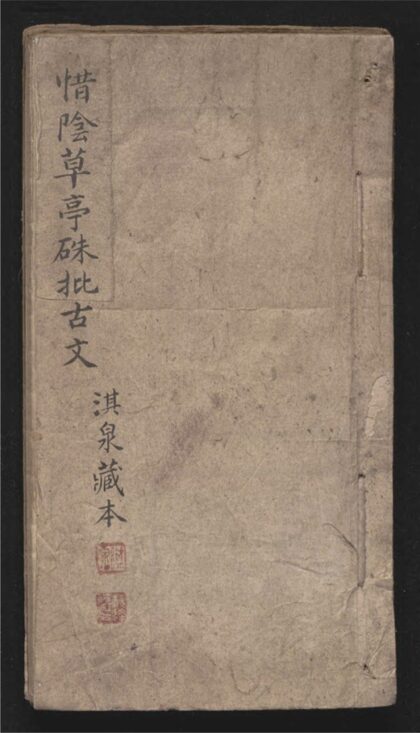 惜陰草亭硃批古文
淇泉藏本